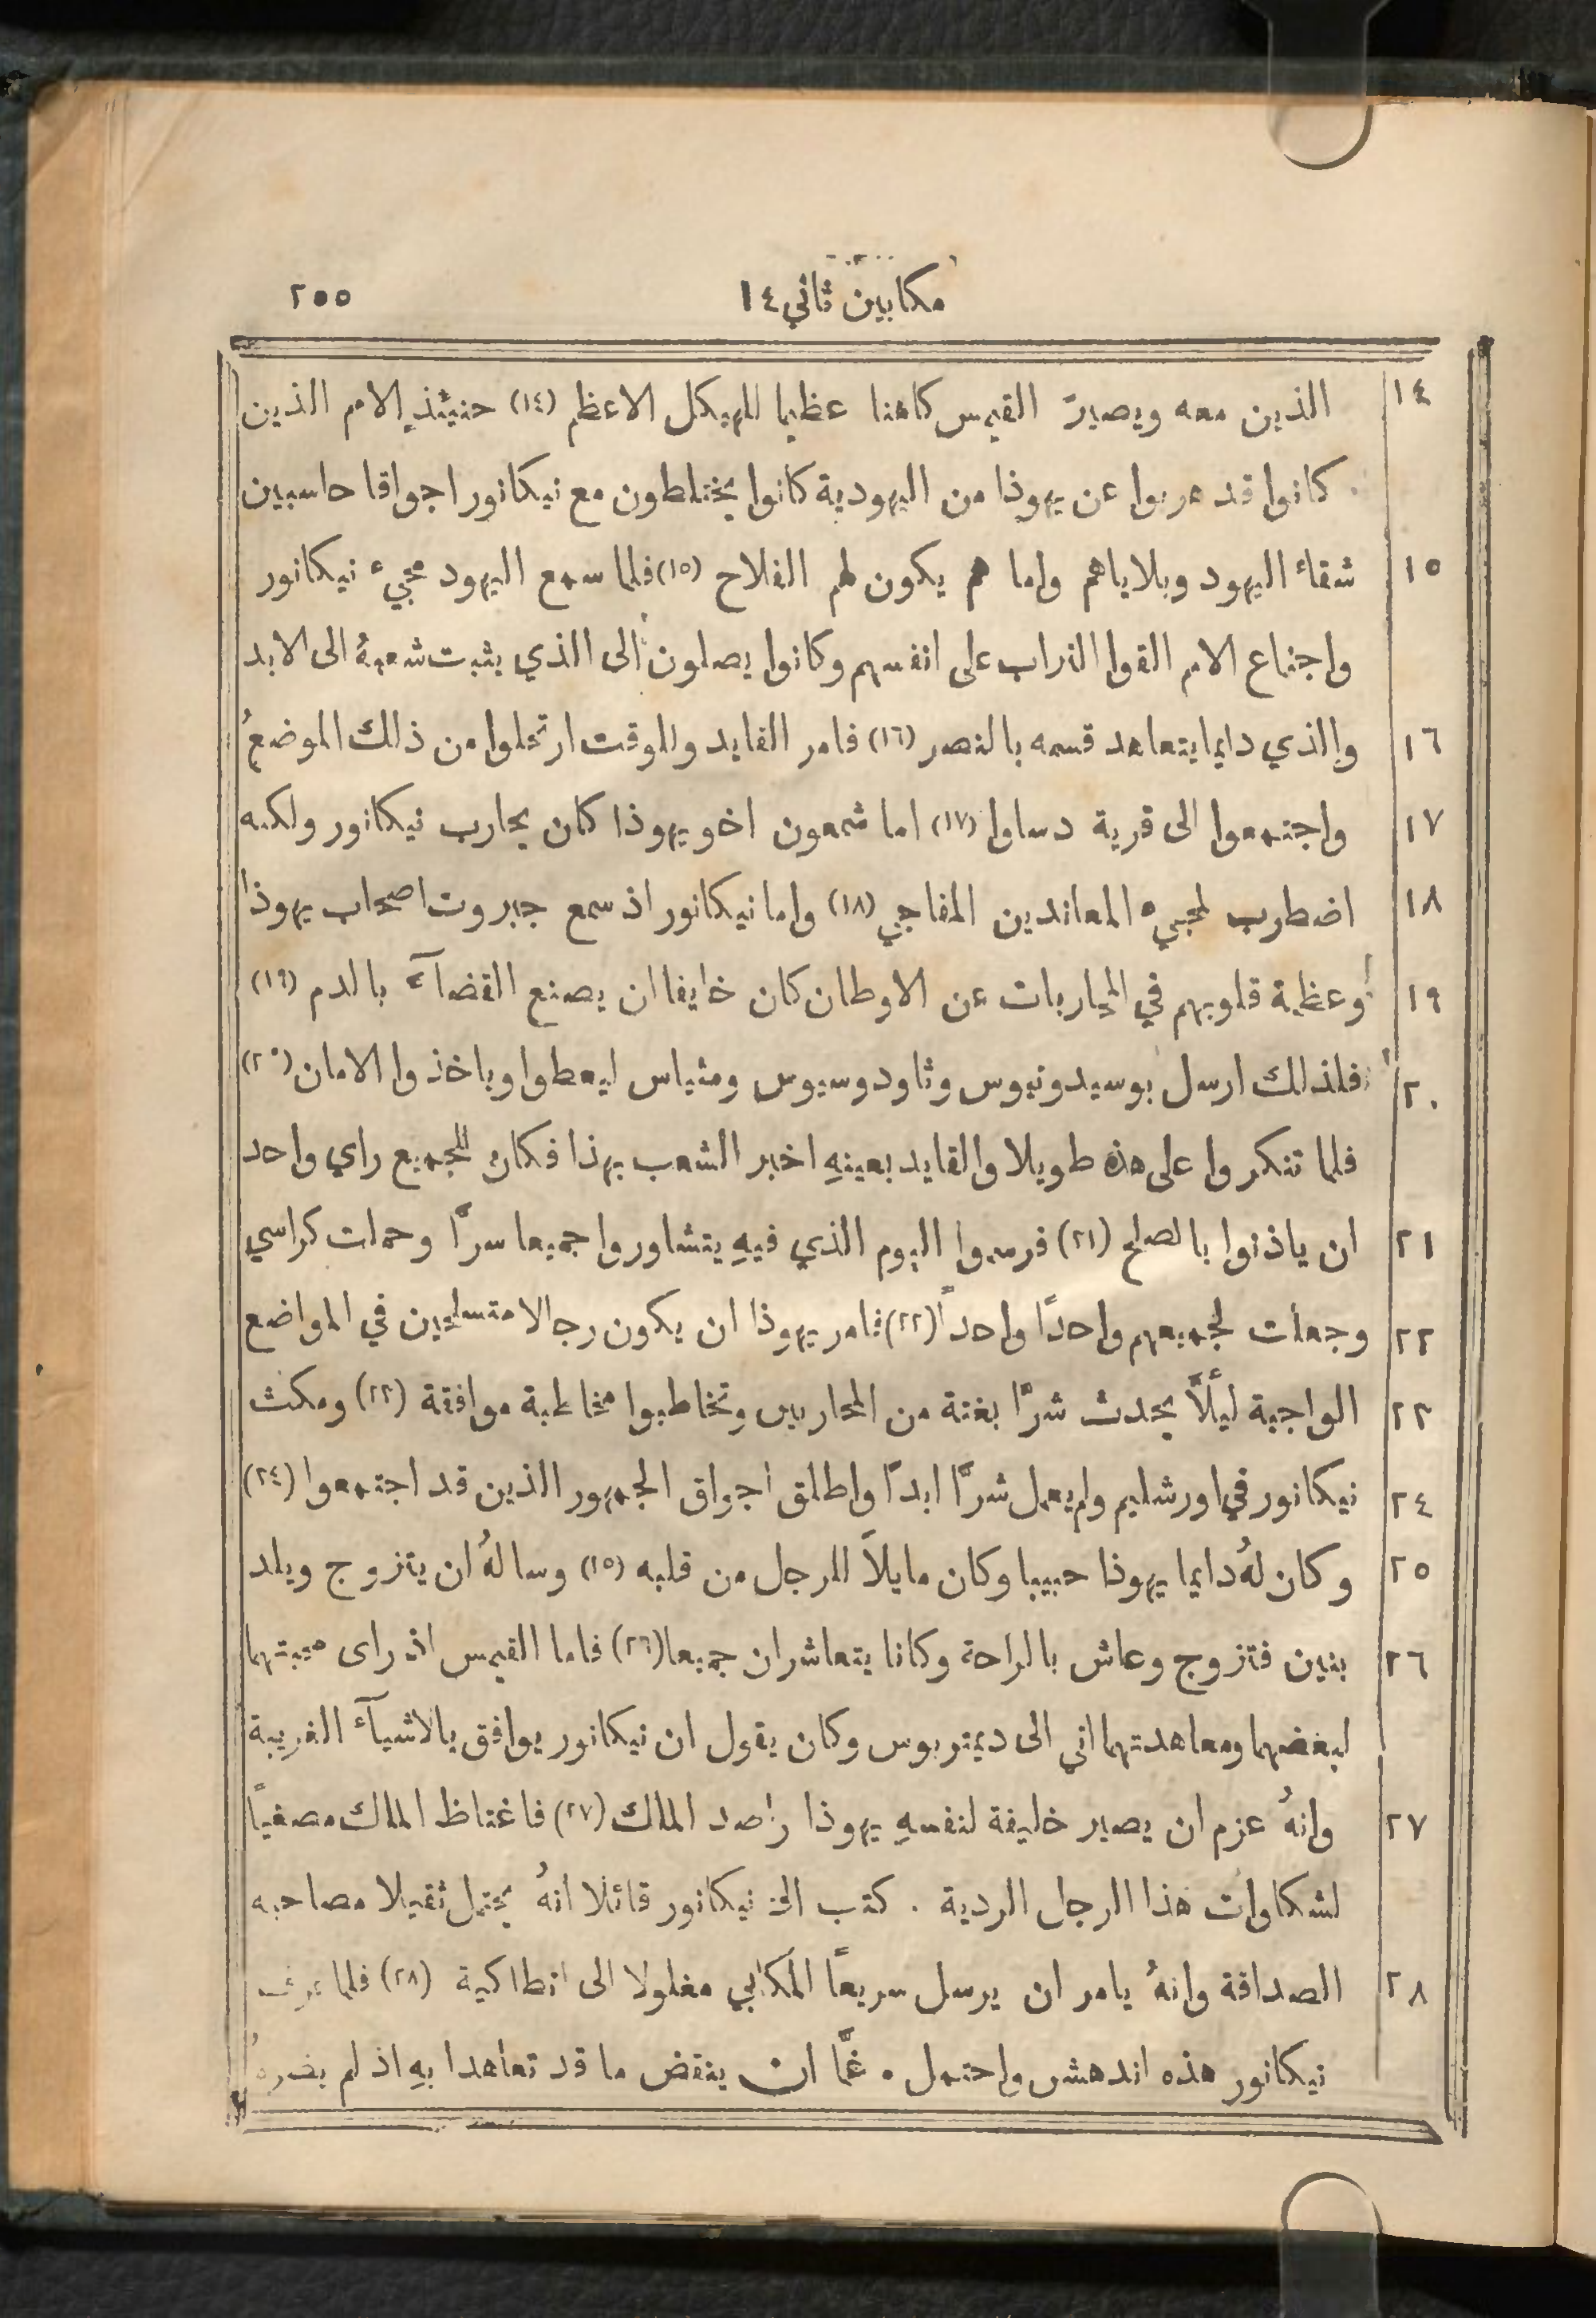 مكابيين ثاني ١٤
٢٥٥
١٤ الذين معه ويصيرّ القيمس كاهنا عظيما للهيكل الاعظم (١٤) حنيئذٍ الامم الذين
كانوا قد هربوا عن يهوذا من اليهودية كانوا يختلطون مع نيكانور اجواقا حاسبين
١٥ شقاء اليهود وبلاياهم واما هم يكون لهم الفلاح (١٥) فلما سمع اليهود مجيء نيكانور
واجتماع الامم القوا التراب على انفسهم وكانوا يصلون الى الذي يثبت شعبهُ الى الابد
١٦ والذي دايما يتعاهد قسمه بالنصر (١٦) فامر القايد وللوقت ارتحلوا من ذلك الموضع
١٧ واجتمعوا الى قرية دساوا (١٧) اما شمعون اخو يهوذا كان يحارب نيكانور ولكنه
١٨ اضطرب لمجيء المعاندين المفاجي (١٨) واما نيكانور اذ سمع جبروت اصحاب يهوذا
١٩ وعظمة قلوبهم في المحاربات عن الاوطان كان خايفا ان يصنع القضآء بالدم (١٩)
٢٠ فلذلك ارسل بوسيدونيوس وثاودوسيوس ومثياس ليعطوا وياخذوا الامان (٢٠)
فلما تفكروا على هذه طويلا والقايد بعينهِ اخبر الشعب بهذا فكان للجميع راي واحد
٢١ ان ياذنوا بالصلح (٢١) فرسموا اليوم الذي فيهِ يتشاوروا جميعا سرًّا وحملت كراسي
٢٢ وجعلت لجميعهم واحدًا واحدًا (٢٢) فامر يهوذا ان يكون رجالا متسلحين في المواضع
٢٣ الواجبة ليلاًّ يحدث شرًّا بغتة من المحاربين وتخاطبوا مخاطبة موافقة (٢٣) ومكث
٢٤ نيكانور في اورشليم ولم يعمل شرًّا ابدًا واطلق اجواق الجمهور الذين قد اجتمعوا (٢٤)
٢٥ وكان لهُ دايما يهوذا حبيبا وكان مايلاً للرجل من قلبه (٢٥) وسالهُ ان يتزوج ويلد
٢٦ بنين فتزوج وعاش بالراحة وكانا يتعاشران جميعا (٢٦) فاما القيمس اذ راى محبتهما
لبعضهما ومعاهدتهما اتي الى ديمتريوس وكان يقول ان نيكانور يوافق بالاشيآء الغريبة
٢٧ وانهُ عزم ان يصير خليفة لنفسهِ يهوذا راصد الملك (٢٧) فاغتاظ الملك مصغيًا
لشكاوات هذا الرجل الردية . كتب الى نيكانور قائلا انهُ يحتمل ثقيلا مصاحبه
٢٨ الصداقة وانهُ يامر ان يرسل سريعًا المكابي مغلولا الى انطاكية (٢٨) فلما عرف
نيكانور هذه اندهش واحتمل . غمًّا ان ينقض ما قد تعاهدا بهِ اذ لم يضرهُ